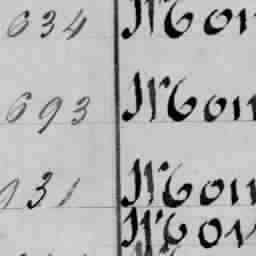 634 Mon
693 Mon
931 Mon
Mon